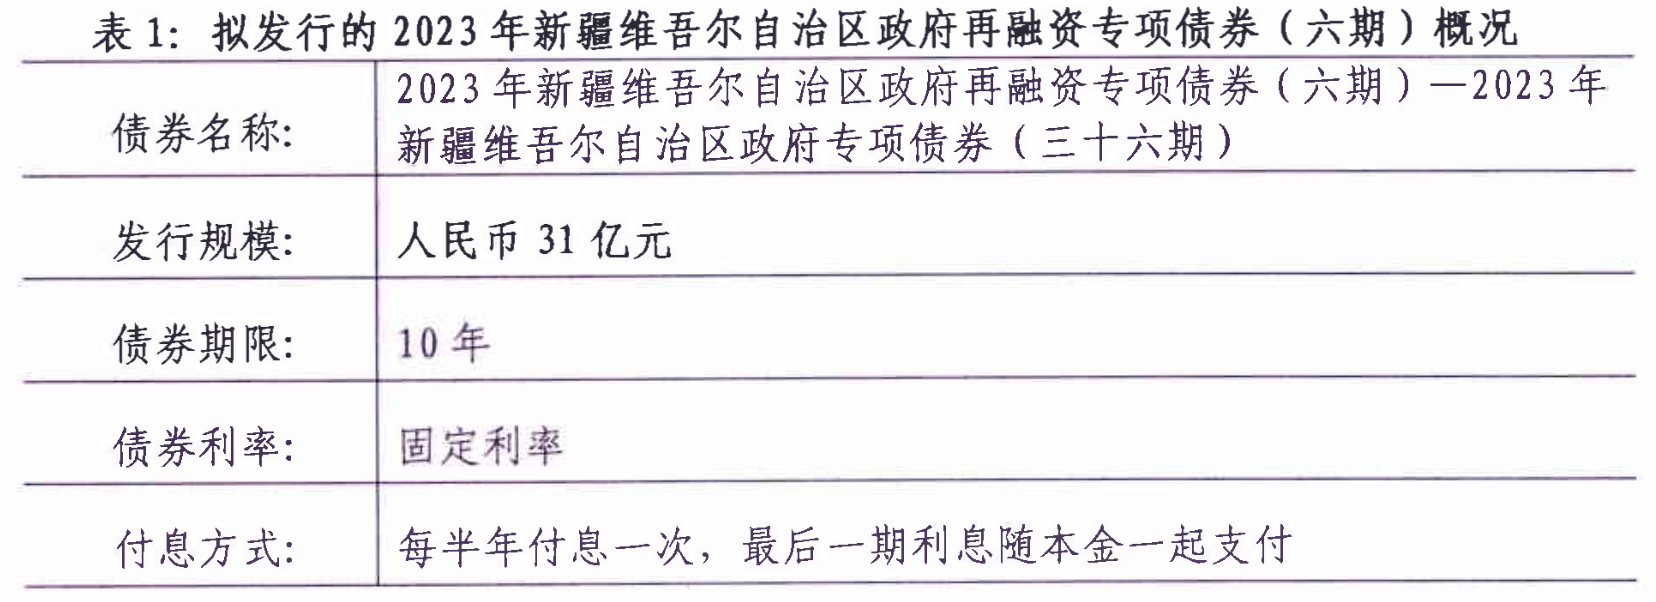 表 1：拟发行的 2023 年新疆维吾尔自治区政府再融资专项债券（六期）概况
债券名称:
2023 年新疆维吾尔自治区政府再融资专项债券（六期）—2023 年
新疆维吾尔自治区政府专项债券（三十六期）
发行规模: 人民币 31 亿元
债券期限: 10 年
债券利率: 固定利率
付息方式: 每半年付息一次，最后一期利息随本金一起支付